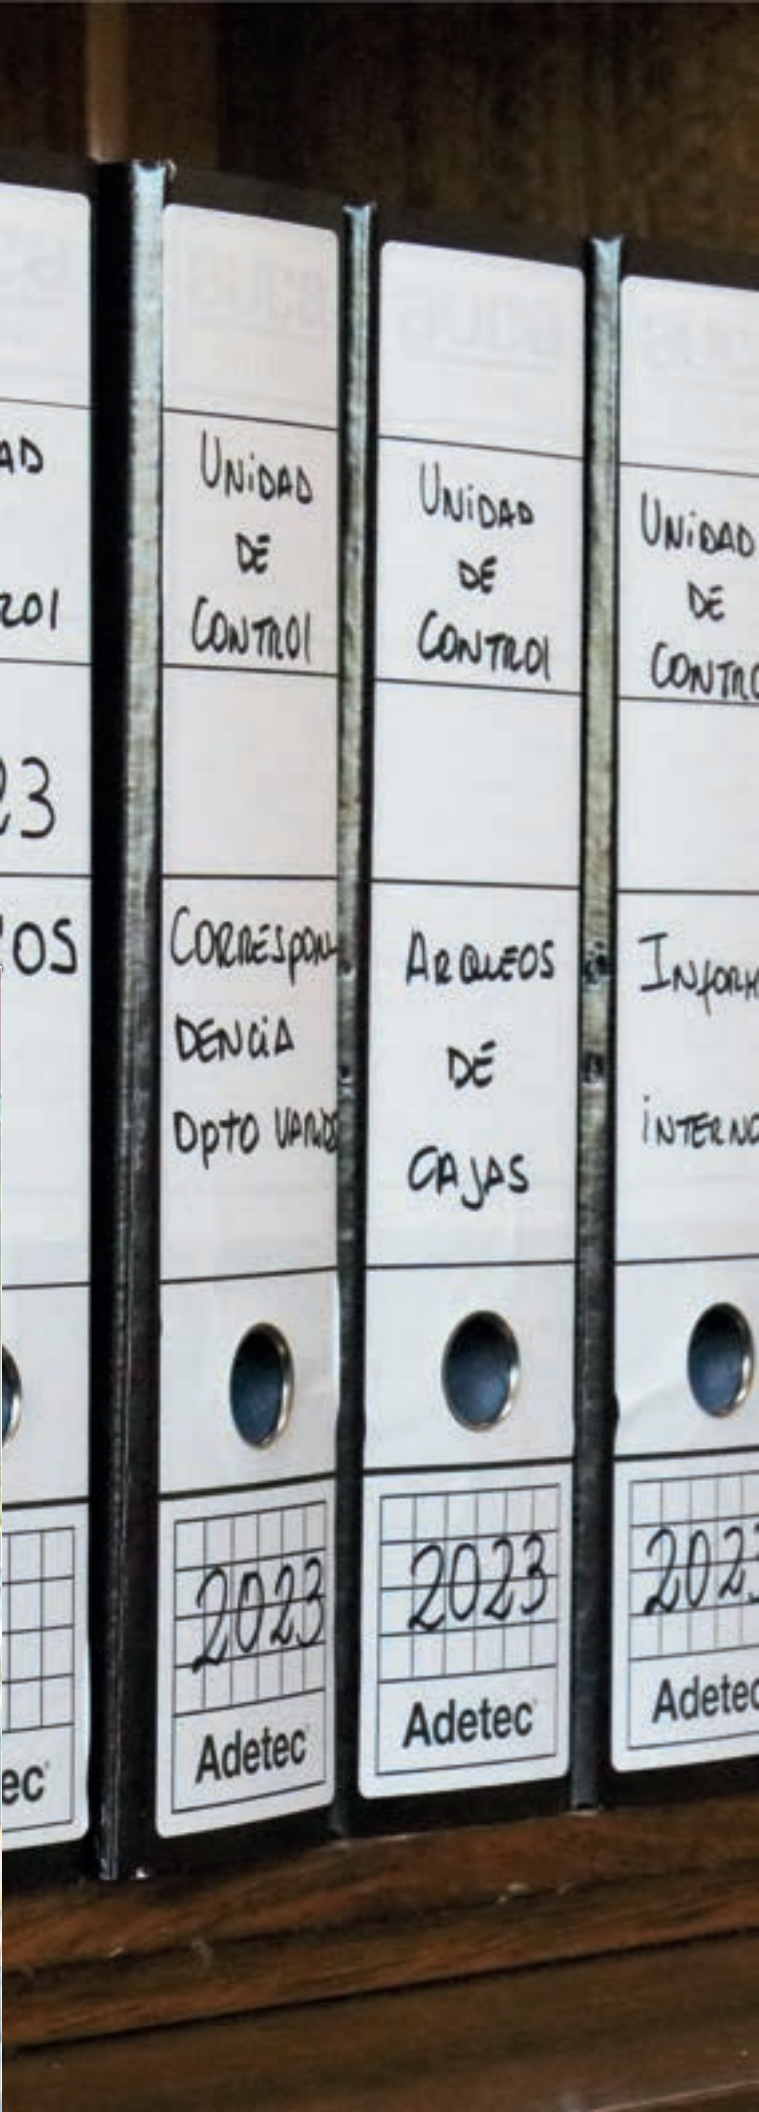 UNiDAD
DE
CONTROl
CORRESpON
DENCiA
DptO VARIOS
2023
Adetec
UNiDAD
DE
CONTROl
ARQUEOS
DE
CAJAS
2023
Adetec
UNiDAD
DE
CONTRO
INfORM
iNTERNO
2023
Adetec